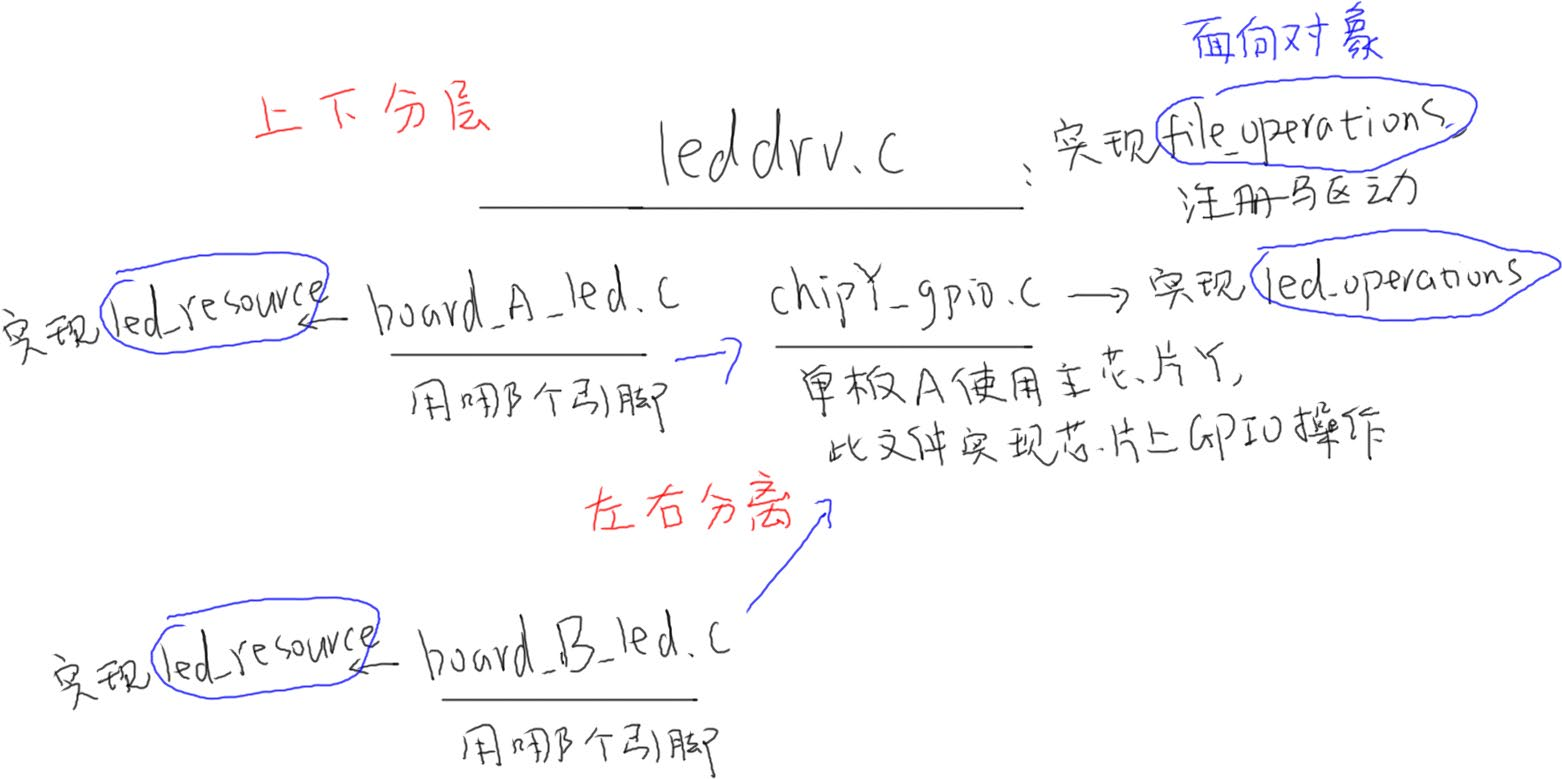 面向对象
上下分层
leddrv.c : 实现file_operations
注册驱动
实现led_resource ← board_A_led.c → chipY_gpio.c → 实现led_operations
用哪个引脚
单板A使用主芯片Y,
此文件实现芯片上GPIO操作
左右分离
实现led_resource ← board_B_led.c
用哪个引脚